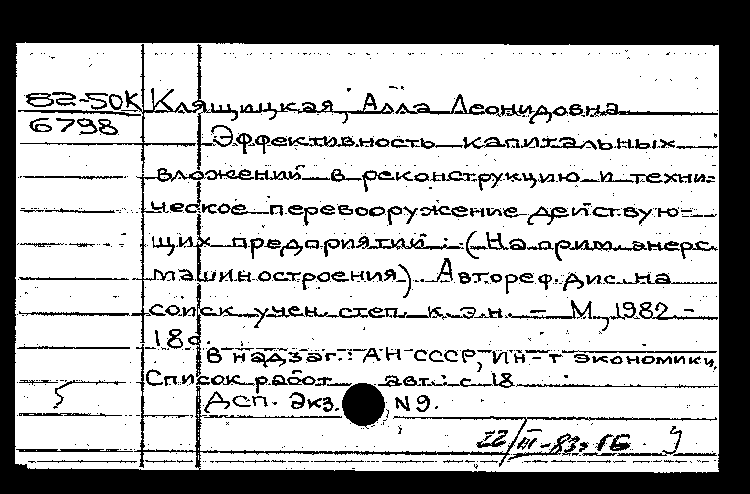 82-50К Клящицкая, Алла Леонидовна
6798
Эффективность капитальных
вложений в реконструкцию и техни-
ческое перевооружение действую-
щих предприятий: (На прим. энерг.
машиностроения). Автореф. дис. на
соиск. учен. степ. к.э.н. - М, 1982 -
18с.
В надзаг.: АН СССР, Ин-т экономики.
Список работ авт.: с 18
5 Дсп. Экз. N 9.
22/III-83г ГБ